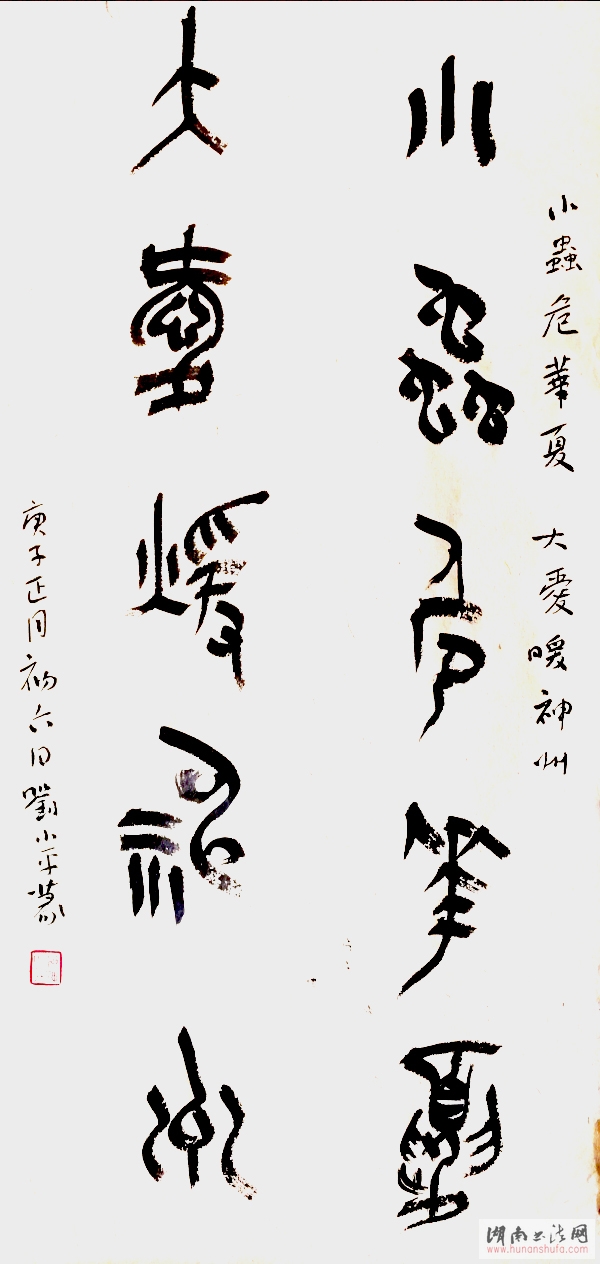 小蟲危華夏 大愛暖神州
小蟲危華夏
大愛暖神州
庚子正月初六日劉小平篆
湖南书法网
www.hunanshufa.com